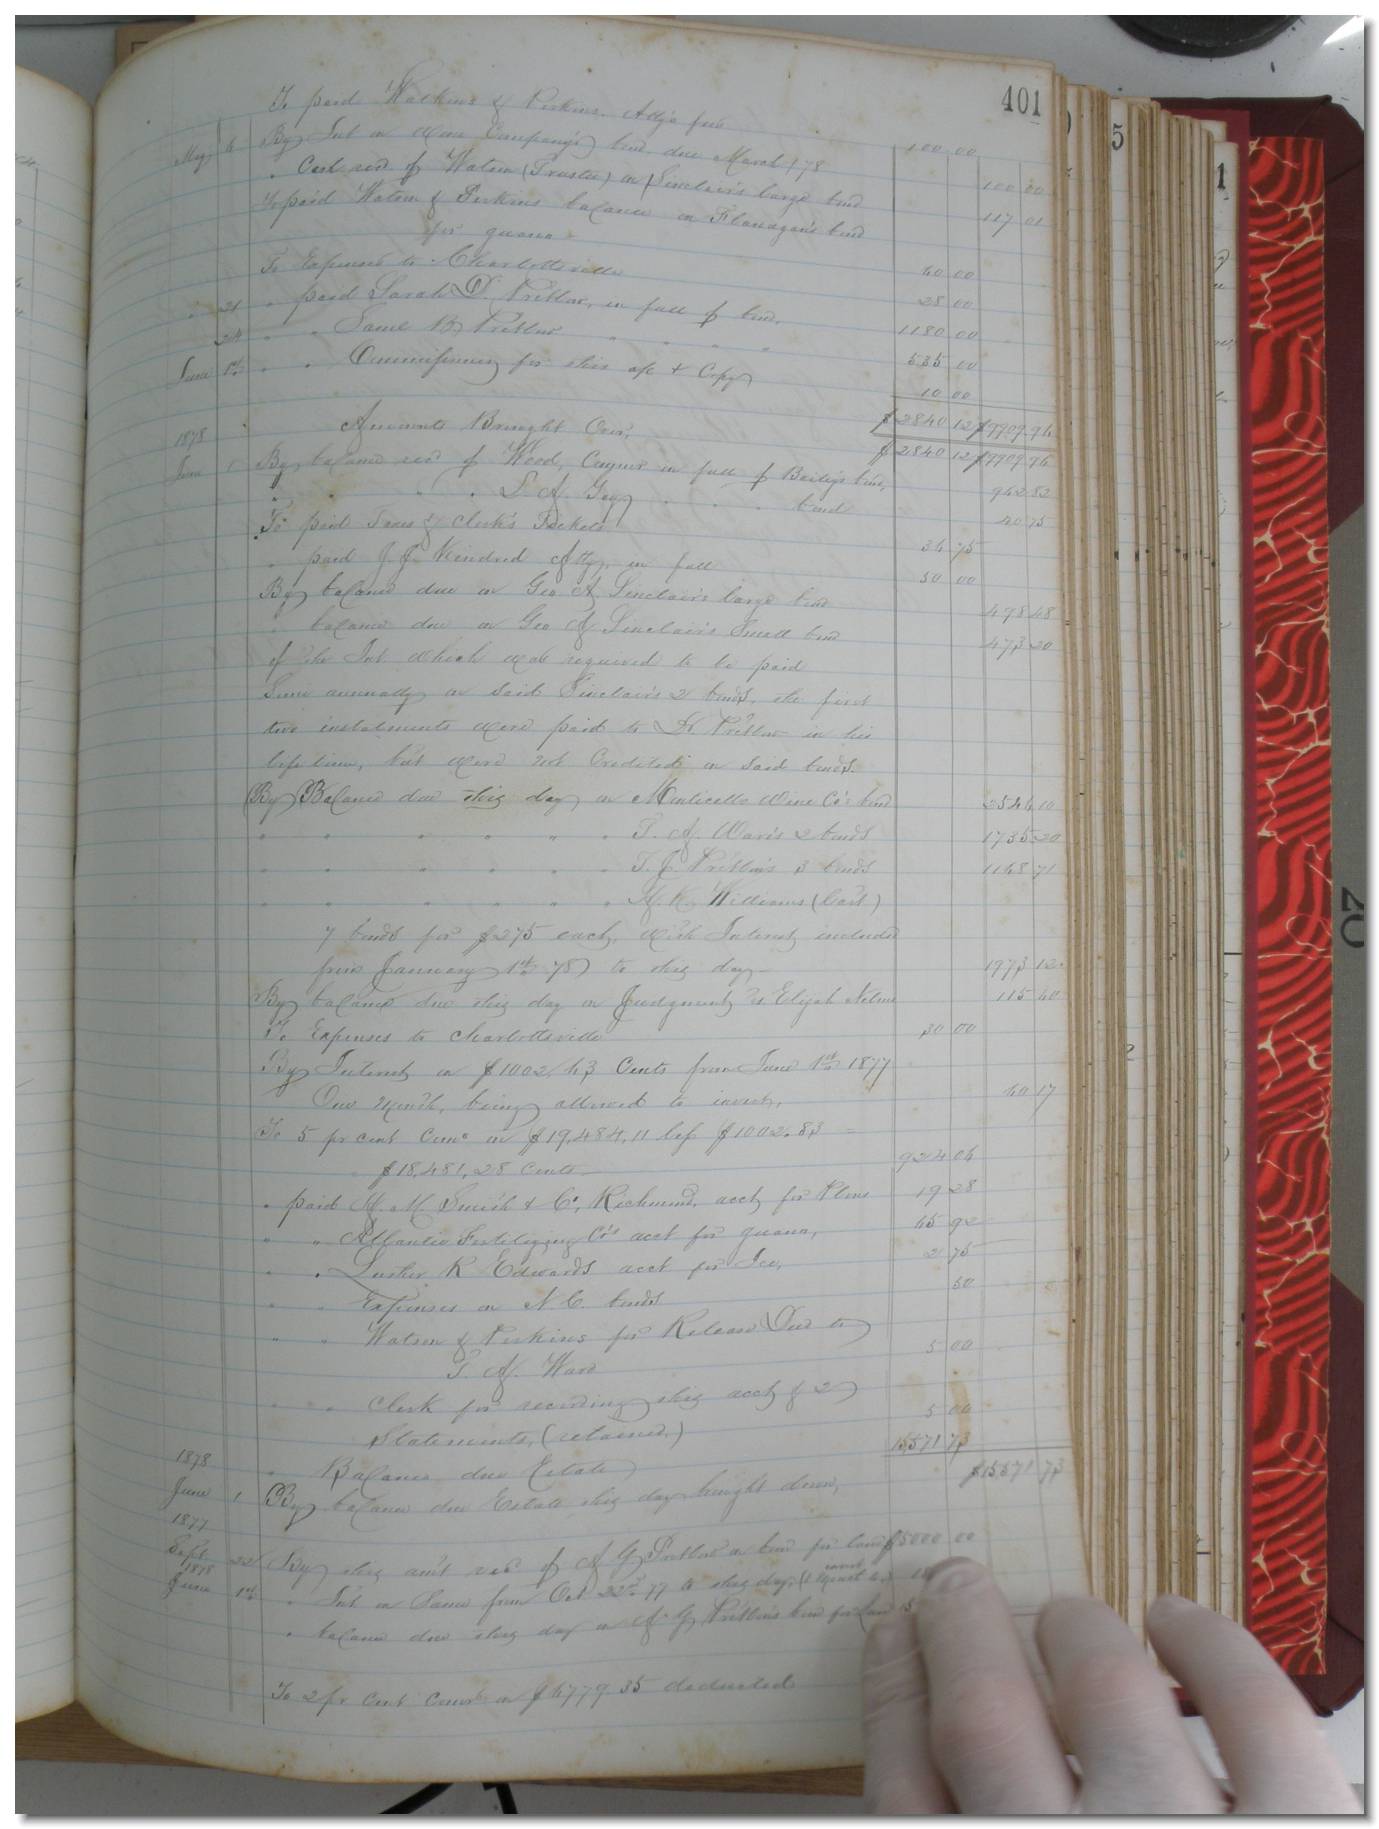 401
To paid Watkins & Perkins Atty's fees 100 00
May 6 By Int on Wine Company's bond due March 1 /78 100 00
" Cash recd of Watson (Trustee) on Sinclair's large bond 117 01
To paid Watson & Perkins balance on Flanagan's bond
for guano 40 00
To Expenses to Charlottesville 28 00
" 21 " paid Sarah D. Pretlow, in full of bond. 1180 00
" 24 " " Saml B Pretlow " " " " 535 00
June 1st " " Commissioner for this a/c & Copy 10 00
$2840 12 $9909.96
Amounts Brought Over, $2840 12 $9909.96
1878
June 1 By balance recd of Wood, Caynor in full of Baily's bond, 942 82
" " " " L. A. Gay " " " bond 20 75
To paid Taxes & Clerk's Tickets 34 75
" paid J. J. Kindred Atty, in full 50 00
By balance due on Geo. A. Sinclair's large bond 498 48
" balance due on Geo A Sinclair's Small bond 473 20
of the Int which was required to be paid
Semi annually on said Sinclair's 2 bonds, the first
two instalments were paid to Dr Pretlow in his
life time, but were not Credited on said bonds.
By Balance due this day on Monticello Wine Co's bond 2546 10
" " " " " " T. A. Ware's 2 bonds 1735 20
" " " " " " T. J. Pretlow's 3 bonds 1168 71
" " " " " " Williams
7 bonds for $275 each, with Interest included
from January 1st 78 to this day 1973 12
By balance due this day on Judgment vs Elijah Nelms 115 40
To Expenses to Charlottesville 30 00
By Interest on $1002,43 Cents from June 1st 1877
One month, being allowed to invest, 40 17
To 5 pr cent Coms on $19,484,11 less $1002.83
$18,481,28 Cents 924 06
" paid H. M. Smith & Co, Richmond, acct for Plows 19 28
" " Atlantic Fertilizing Co's acct for guano, 45 92
" " Luther R Edwards acct for Ice, 2 75
" " Expenses on N C. bonds 50
" " Watson & Perkins for Release Deed to
T. A. Ware 5 00
" " Clerk for recording this acct & 2
Statements, (retained,) 5 00
" Balance due Estate 15571 73
1878
June 1 By balance due Estate this day brought down, $15571 73
1877
Sept 22 By this amt recd of A G Pretlow on bond for land $5000 00
1878
June 1st " Int on Same from Oct 22nd 77 to this day,
" balance due this day on A G Pretlow's bond for land
To 2 pr cent Coms on $6779.35 deducted